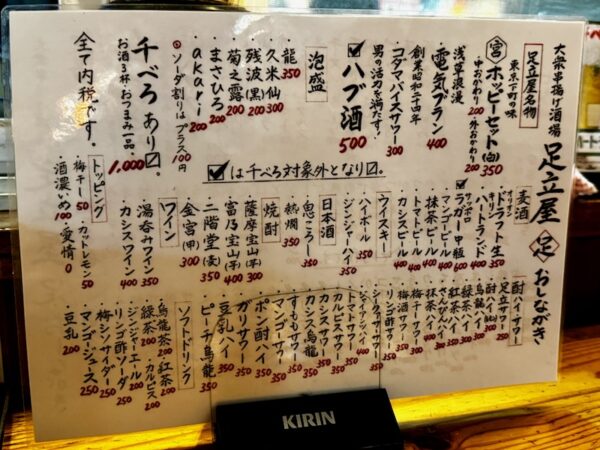 大衆串揚げ酒場 足立屋 足 おしながき
足立屋名物
東京下町の味
宮 ホッピーセット(白) 350
・中おかわり 200 ・外おかわり 200
浅草浪漫
電気ブラン 400
創業昭和二十四年
コダマバイスサワー 300
男の活力を満たす!
ハブ酒 500
泡盛
・龍 350
・久米仙 300
・残波(黒) 200
・菊之露 200
・まさひろ 200
・akari 200
◎ソーダ割りはプラス100円
千べろあり〼。
お酒3杯 おつまみ一品 1,000
全て内税です。
は千べろ対象外となり〼。
麦酒
オリオン
・ドラフト生 350
・ハートランド 400
サッポロ
・ラガー中瓶 600
・マンゴービール 400
・抹茶ビール 400
・トマトビール 400
・カシスビール 400
ウイスキー
・ハイボール 350
・ジンジャーハイ 350
日本酒
・鬼ごろし 350
・熱燗 350
焼酎
・薩摩宝山(芋) 400
・富乃宝山(芋) 400
・二階堂(麦) 350
・金宮(甲) 300
ワイン
・湯呑みワイン 350
・カシスワイン 400
トッピング
・梅干し 50 ・カットレモン 50
・酒濃いめ 100 ・愛情 0
酎ハイ・サワー
・足立サワー 350
・酎ハイ
・烏龍ハイ 350
・緑茶ハイ 350
・紅茶ハイ 350
・さんぴんハイ 350
・抹茶ハイ 400
・梅干しサワー 400
・梅酒サワー 350
・リンゴ酢サワー 350
・シークヮーサーサワー 350
・トマトサワー 400
・カルピスサワー 350
・カシスサワー 350
・カシス烏龍 350
・すももサワー 350
・マンゴーサワー 350
・ポン酢ハイ 350
・ガリサワー 350
・豆乳ハイ 350
・ピーチ烏龍 350
ソフトドリンク
・烏龍茶 200 ・紅茶 200
・緑茶 200 ・カルピス 200
・ジンジャーエール 200
・リンゴ酢ソーダ 250
・梅シソサイダー 250
・マンゴージュース 250
・豆乳 200
KIRIN